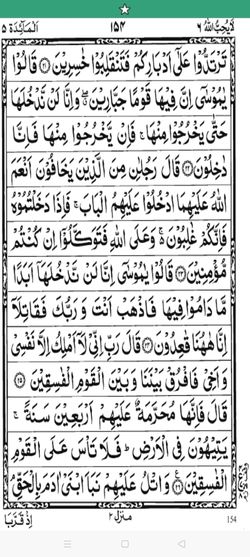 لَا يُحِبُّ اللّٰهُ ٦ ١٥٤ اَلْمَآئِدَة ٥
تَرْتَدُّوْا عَلٰٓى اَدْبَارِكُمْ فَتَنْقَلِبُوْا خٰسِرِيْنَ ﴿٢١﴾ قَالُوْا
يٰمُوْسٰٓى اِنَّ فِيْهَا قَوْمًا جَبَّارِيْنَ ۖ وَاِنَّا لَنْ نَّدْخُلَهَا
حَتّٰى يَخْرُجُوْا مِنْهَا ۚ فَاِنْ يَّخْرُجُوْا مِنْهَا فَاِنَّا
دٰخِلُوْنَ ﴿٢٢﴾ قَالَ رَجُلٰنِ مِنَ الَّذِيْنَ يَخَافُوْنَ اَنْعَمَ
اللّٰهُ عَلَيْهِمَا ادْخُلُوْا عَلَيْهِمُ الْبَابَ ۚ فَاِذَا دَخَلْتُمُوْهُ
فَاِنَّكُمْ غٰلِبُوْنَ ۚ وَعَلَى اللّٰهِ فَتَوَكَّلُوْٓا اِنْ كُنْتُمْ
مُّؤْمِنِيْنَ ﴿٢٣﴾ قَالُوْا يٰمُوْسٰٓى اِنَّا لَنْ نَّدْخُلَهَآ اَبَدًا
مَّا دَامُوْا فِيْهَا فَاذْهَبْ اَنْتَ وَرَبُّكَ فَقَاتِلَآ
اِنَّا هٰهُنَا قٰعِدُوْنَ ﴿٢٤﴾ قَالَ رَبِّ اِنِّيْ لَآ اَمْلِكُ اِلَّا نَفْسِيْ
وَاَخِيْ فَافْرُقْ بَيْنَنَا وَبَيْنَ الْقَوْمِ الْفٰسِقِيْنَ ﴿٢٥﴾
قَالَ فَاِنَّهَا مُحَرَّمَةٌ عَلَيْهِمْ اَرْبَعِيْنَ سَنَةً ۚ
يَتِيْهُوْنَ فِى الْاَرْضِ ؕ فَلَا تَاْسَ عَلَى الْقَوْمِ
الْفٰسِقِيْنَ ﴿٢٦﴾ وَاتْلُ عَلَيْهِمْ نَبَاَ ابْنَيْ اٰدَمَ بِالْحَقِّ ۘ
اِذْ قَرَّبَا منزل ٢ 154